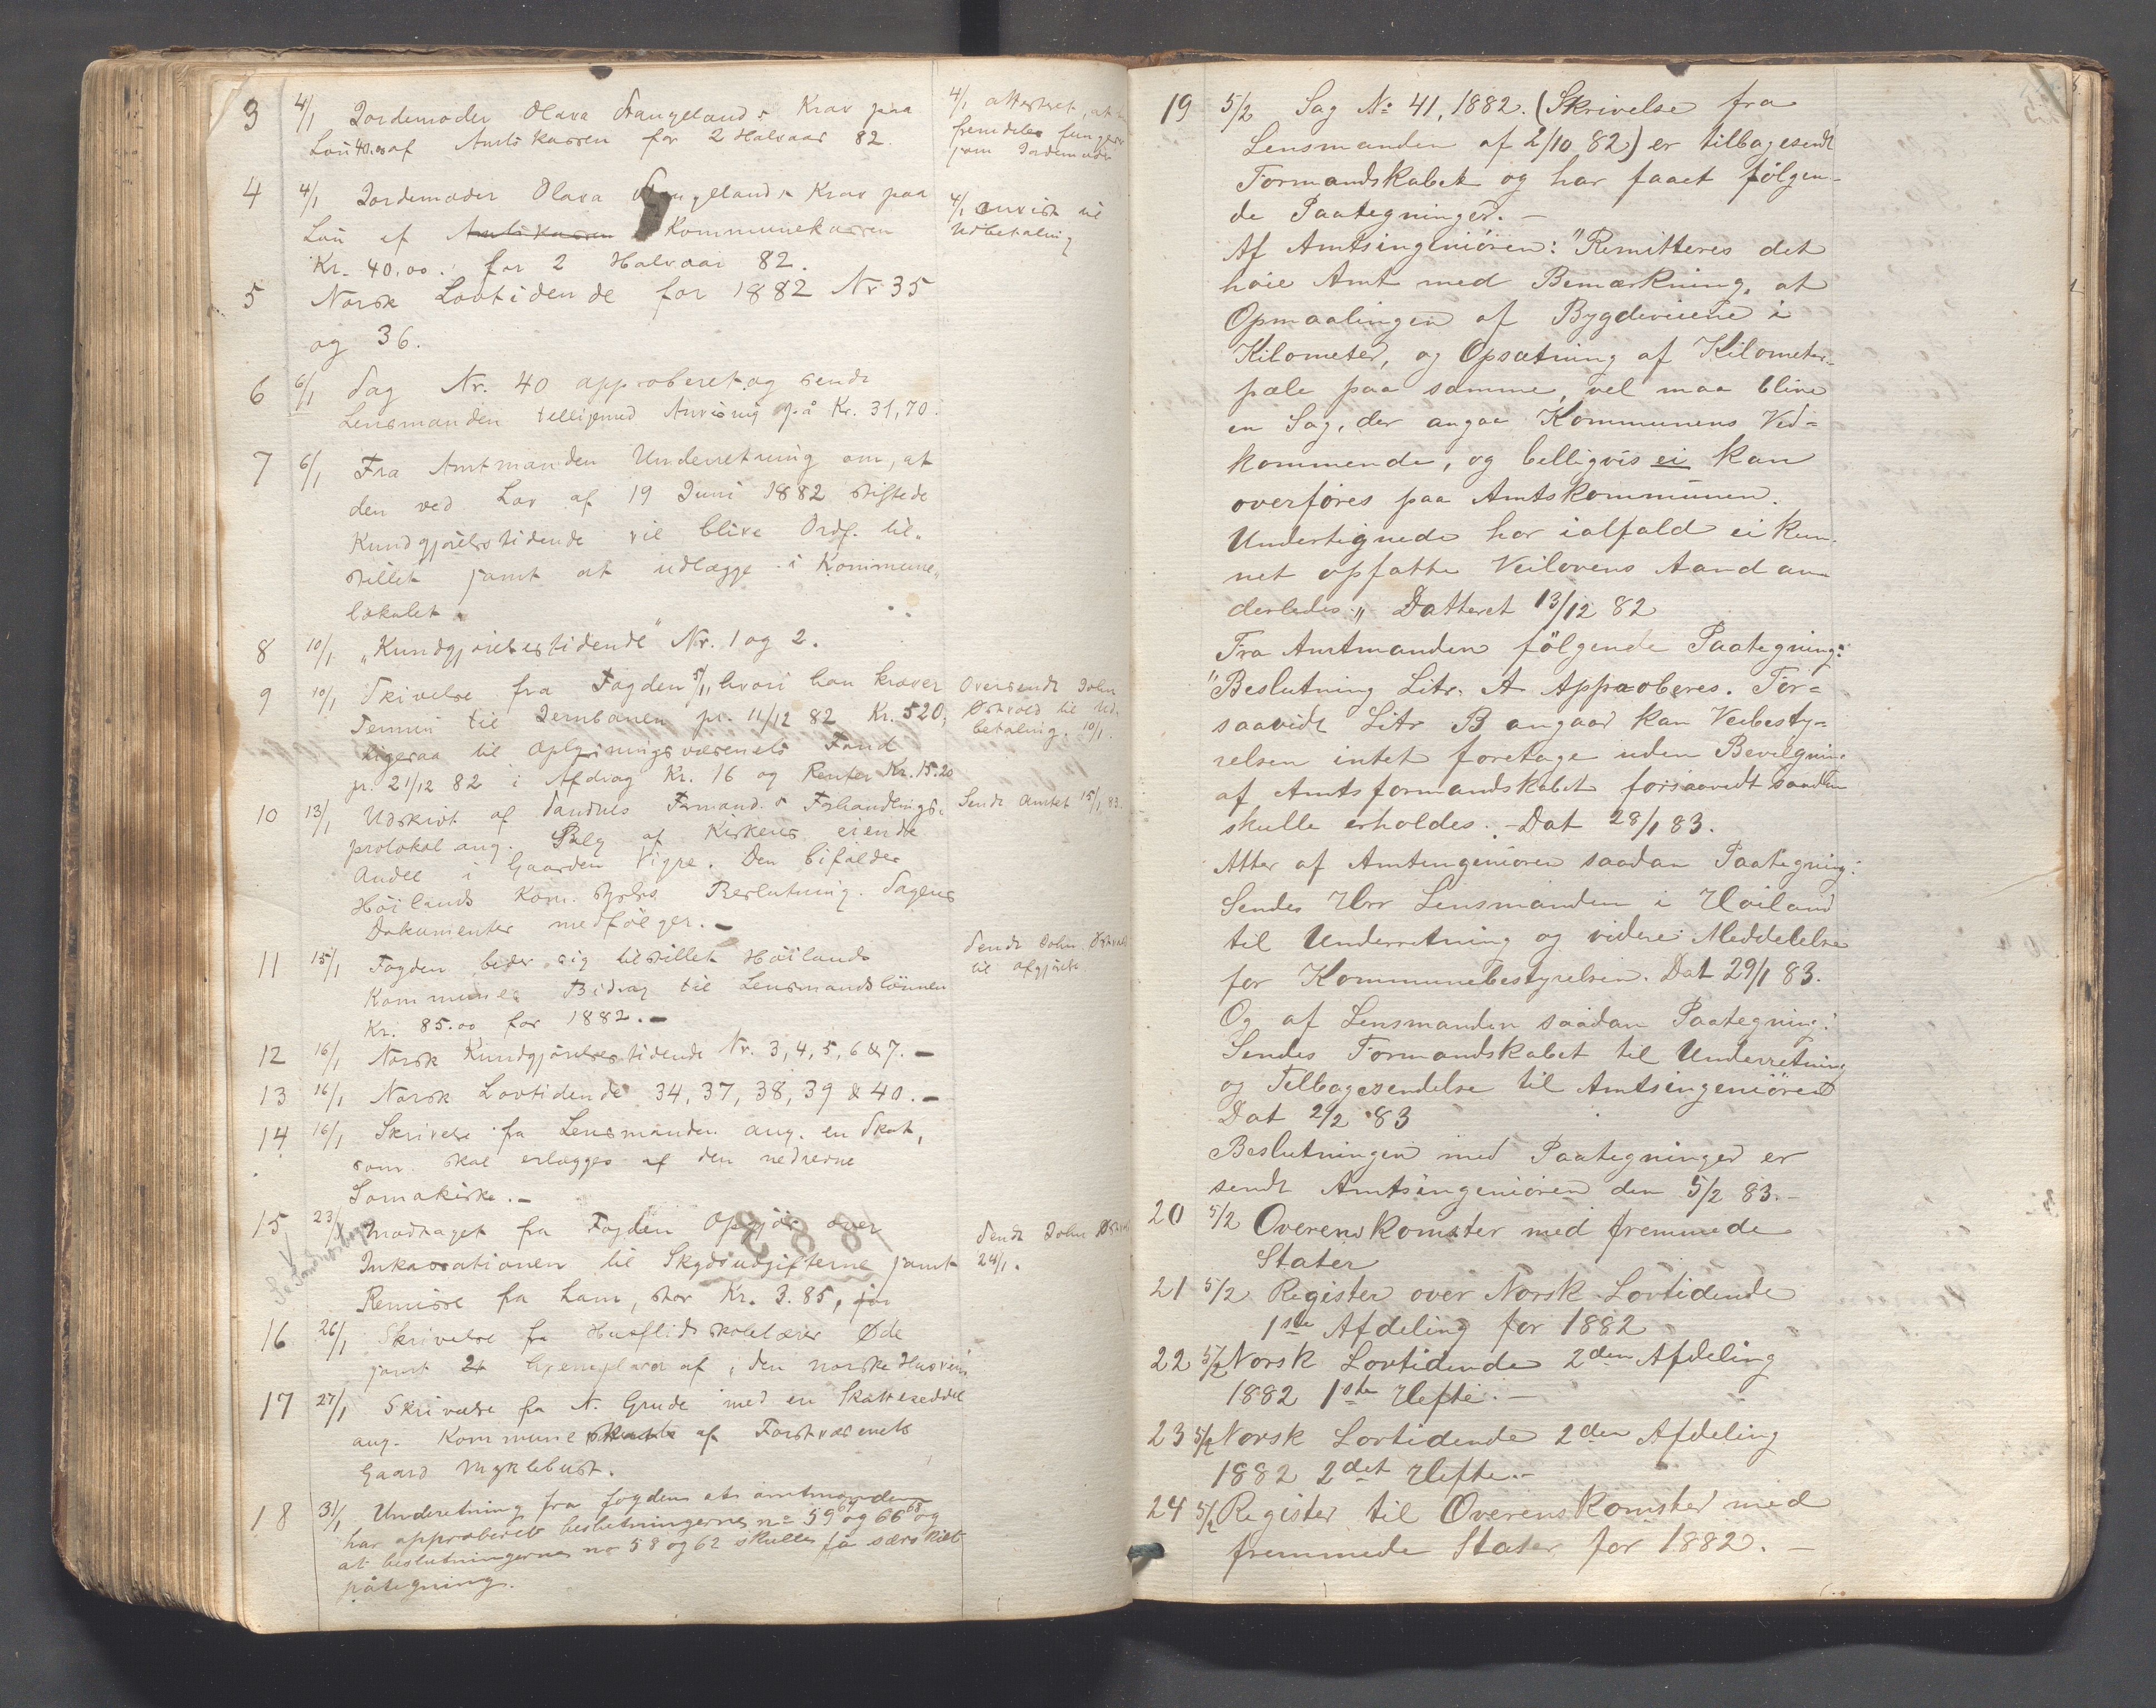 3 4/1 Jordemoder Olava Stangelands Krav paa
Løn 40.00 af Amtskassen for 2 Halvaar 82.
4/1 attesteret, at
fremdeles fungerer
som Jordemoder
4 4/1 Jordemoder Olava Stangelands Krav paa
Løn af Amtskassen Kommunekassen
Kr. 40.00. for 2 Halvaar 82.
4/1 anvist til
Udbetaling
5 Norsk Lovtidende for 1882 Nr 35
og 36.
6 6/1 Sag Nr. 40 approberet og sendt
Lensmanden tilligemed Anvisning p. å Kr. 31,70.
7 6/1 Fra Amtmanden Underretning om, at
den ved Lov af 19 Juni 1882 stiftede
Kundgjörelsestidende vil blive Ordf. til-
stillet samt at udlægge i Kommune-
lokalet.
8 10/1 „Kundgjörelsestidende" Nr. 1 og 2.
9 10/1 Skrivelse fra Fogden 5/1, hvori han kræver
Termin til Jernbanen pr. 11/12 82 Kr. 520,
ligesaa til Oplysningsvæsenets Fond
pr. 21/12 82 i Afdrag Kr. 16 og Renter Kr. 15.20
Oversendt John
Østvold til Ud-
betaling. 10/1.
10 13/1 Udskrivt af Sandnes Formand.s Forhandlings-
protokol ang. Salg af Kirkens eiende
Andel i Gaarden Vigre. Den bifalder
Höilands Kom. styres Beslutning. Sagens
Dokumenter medfölger. -
Sendt Amtet 15/1 83.
11 15/1 Fogden beder sig tilstillet Höilands
Kommunes Bidrag til Lensmandslönnen
Kr. 85.00 for 1882. -
Sendt John Østvold
til afgjörelse
12 16/1 Norsk Kundgjörelsestidende Nr. 3, 4, 5, 6 & 7. -
13 16/1 Norsk Lovtidende 34, 37, 38, 39 & 40. -
14 16/1 Skrivelse fra Lensmanden ang. en Skat,
som skal erlægges af den nedrevne
Somakirke. -
15 23/1 Modtaget fra Fogden Opgjör over
Inkassationen til Skydsudgifterne samt
Remisse fra ham, stor Kr. 3.85, for
Sendt John Østvold
24/1.
16 26/1 Skrivelse fra Husflidsskolelærer Øde
samt 24 Exemplarer af „den norske Husven"
17 27/1 Skrivelse fra N. Grude med en Skatteseddel
ang. Kommuneskat af Forstvæsenets
Gaard Myklebust.
18 31/1 Underetning fra fogden at amtmanden
har approberet beslutningerne no 59 67 og 66 68 og
at beslutningerne no 58 og 62 skulle få særskilt
påtegning.
19 5/2 Sag No 41, 1882. (Skrivelse fra
Lensmanden af 2/10 82) er tilbagesendt
Formandskabet og har faaet følgen-
de Paategninger. -
Af Amtsingeniören: "Remitteres det
høie Amt med Bemærkning, at
Opmaalingen af Bygdeveiene i
Kilometer, og Opsætning af Kilometer-
pæle paa samme, vel maa blive
en Sag, der angaar Kommunens Ved=
kommende, og billigvis ei kan
overføres paa Amtskommunen.
Undertegnede har ialfald ei kun-
net opfatte Veilovens Aand an-
derledes." Datteret 13/12 82
Fra Amtmanden fölgende Paategning:
"Beslutning Litr. A Approberes. For=
saavidt Litr B angaar kan Veibesty=
relsen intet foretage uden Bevilgning
af Amtsformandskabet forsaavidt saadan
skulle erholdes. - Dat 28/1 83.
Atter af Amtingeniören saadan Paategning:
Sendes Hrr Lensmanden i Høiland
til Underretning og videre Meddelelse
for Kommunebestyrelsen. Dat 29/1 83.
Og af Lensmanden saadan Paategning:
Sendes Formandskabet til Underretning
og Tilbagesendelse til Amtsingeniören
Dat 2/2 83
Beslutningen med Paategninger er
sendt Amtsingeniören den 5/2 83. -
20 5/2 Overenskomster med fremmede
Stater
21 5/2 Register over Norsk Lovtidende
1ste Afdeling for 1882
22 5/2 Norsk Lovtidende 2den Afdeling
1882 1ste Hefte. -
23 5/2 Norsk Lovtidende 2den Afdeling
1882 2det Hefte. -
24 5/2 Register til Overenskomster med
fremmede Stater for 1882. -